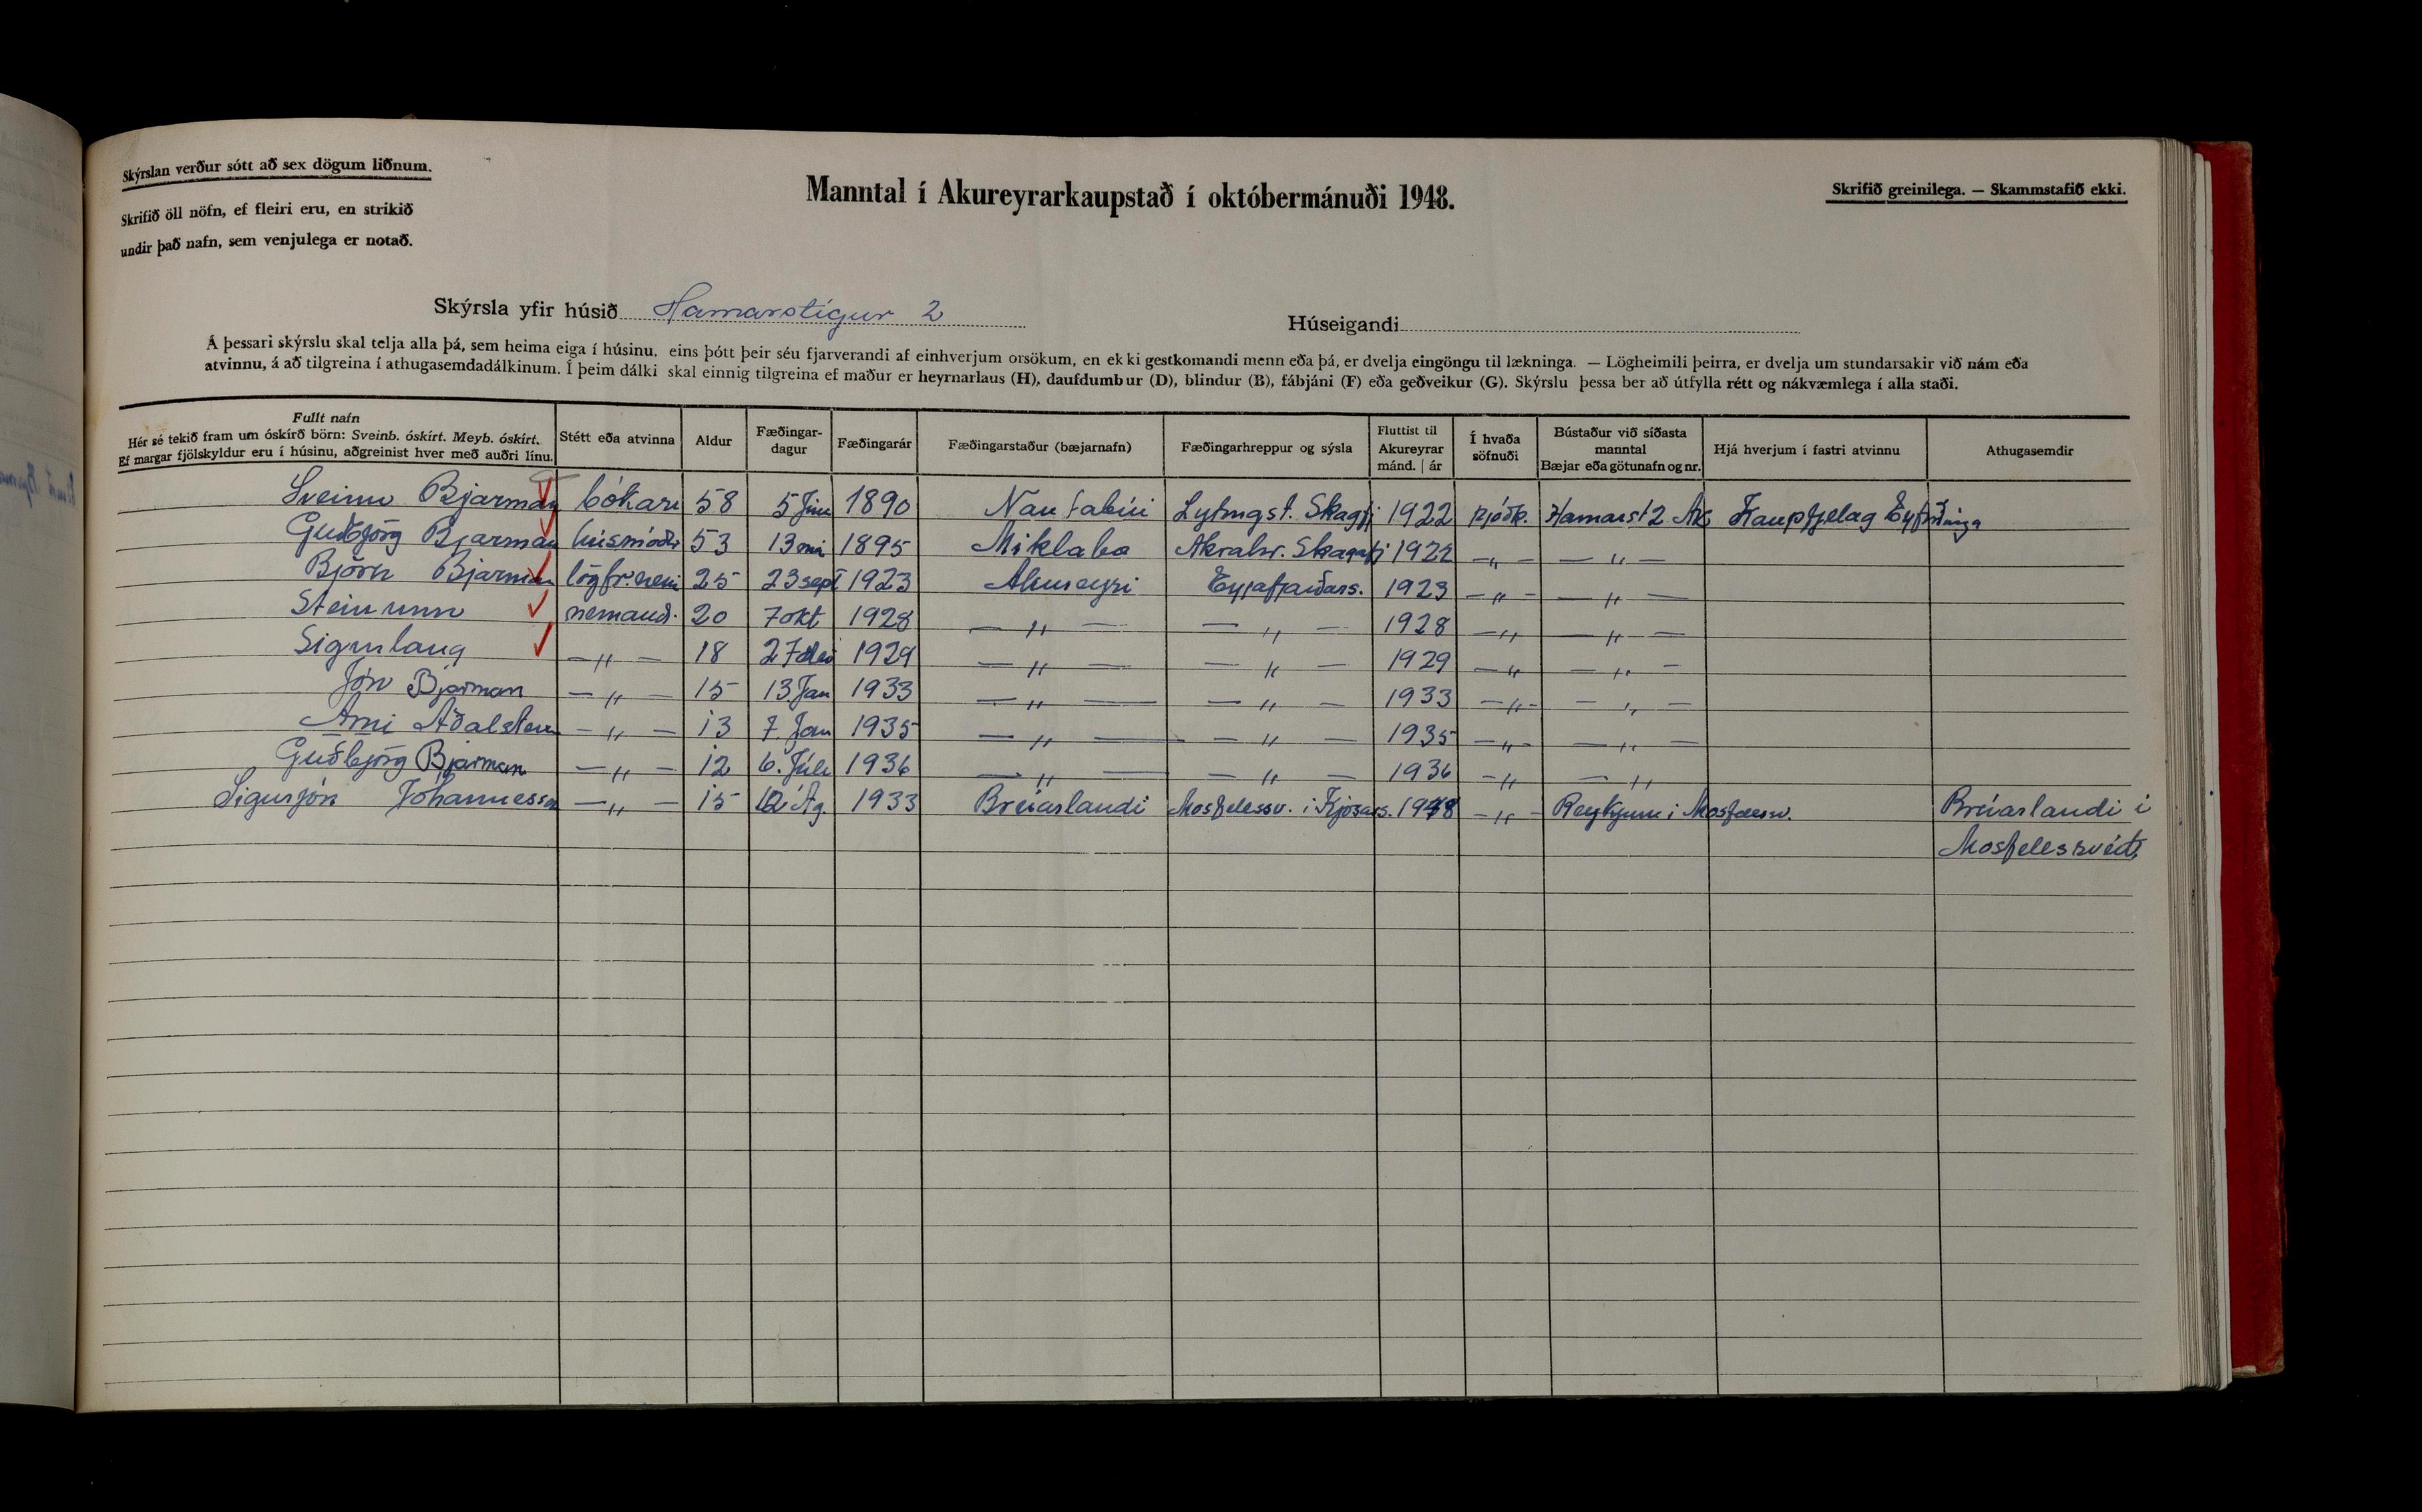 Skýrslan verður sótt að sex dögum liðnum.
Skrifið öll nöfn, ef fleiri eru, en strikið
undir það nafn, sem venjulega er notað.
Manntal í Akureyrarkaupstað í októbermánuði 1948.
Skrifið greinilega. — Skammstafið ekki.
Skýrsla yfir húsið Hamarstígur 2
Húseigandi
Á þessari skýrslu skal telja alla þá, sem heima eiga í húsinu, eins þótt þeir séu fjarverandi af einhverjum orsökum, en ekki gestkomandi menn eða þá, er dvelja eingöngu til lækninga. — Lögheimili þeirra, er dvelja um stundarsakir við nám eða
atvinnu, á að tilgreina í athugasemdadálkinum. Í þeim dálki skal einnig tilgreina ef maður er heyrnarlaus (H), daufdumbur (D), blindur (B), fábjáni (F) eða geðveikur (G). Skýrslu þessa ber að útfylla rétt og nákvæmlega í alla staði.
Fullt nafn
Hér sé tekið fram um óskírð börn: Sveinb. óskírt. Meyb. óskírt.
Ef margar fjölskyldur eru í húsinu, aðgreinist hver með auðri línu.
Stétt eða atvinna
Aldur
Fæðingar-
dagur
Fæðingarár
Fæðingarstaður (bæjarnafn)
Fæðingarhreppur og sýsla
Fluttist til
Akureyrar
mánd. | ár
Í hvaða
söfnuði
Bústaður við síðasta
manntal
Bæjar eða götunafn og nr.
Hjá hverjum í fastri atvinnu
Athugasemdir
Sveinn Bjarman bókari 58 5 Jún 1890 Nautabúi Lytingst. Skagfj 1922 þjóðk. Hamarst 2 Ak Kaupfjelag Eyfirðinga
Guðbjörg Bjarman húsmóðir 53 13 mai 1895 Miklabæ Akrahr. Skagafj 1922 —〃— —〃—
Björn Bjarman lögfr.nemi 25 23 sept 1923 Akureyri Eyjafjarðars. 1923 —〃— —〃—
Steinunn nemandi 20 7 okt 1928 —〃— —〃— 1928 —〃— —〃—
Sigurlaug —〃— 18 27 des 1929 —〃— —〃— 1929 —〃— —〃—
Jón Bjarman —〃— 15 13. Jan 1933 —〃— —〃— 1933 —〃— —〃—
Árni Aðalsteinn —〃— 13 7. Jan 1935 —〃— —〃— 1935 —〃— —〃—
Guðbjörg Bjarman —〃— 12 6. Júlí 1936 —〃— —〃— 1936 —〃— —〃—
Sigurjón Jóhannesson —〃— 15 Ág. 1933 Brúarlandi Mosfellssv. í Kjósars. 1948 —〃— Reykjum í Mosfellssv. Brúarlandi í
Mosfellssveit